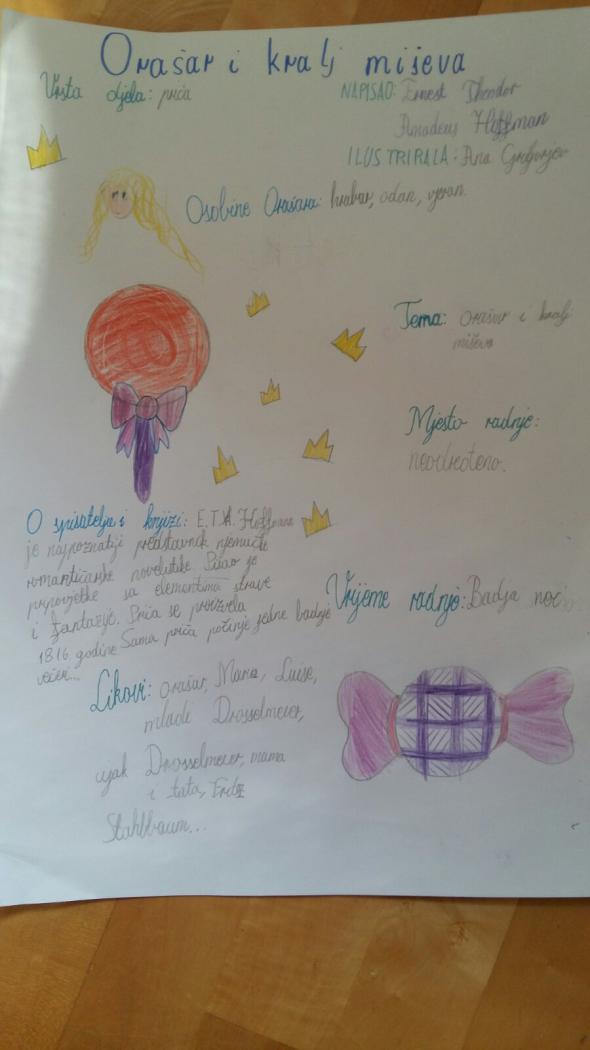 Orašar i kralj miševa
Vrsta djela: priča
NAPISAO: Ernest Theodor
Amadeus Hoffman
ILUSTRIRALA: Ana Grigorjev
Osobine Orašara: hrabar, odan, vjeran.
Tema: orašar i kralj
miševa
Mjesto radnje:
neodređeno.
O spisatelju i knjizi: E.T.A. Hoffmann
je najpoznatiji predstavnik njemačke
romantičarske novelistike. Pisao je
pripovjetke sa elementima strave
i fantazije. Priča se proizvela
1816. godine Sama priča počinje jedne badnje
večeri...
Vrijeme radnje: Badnja noć
Likovi: orašar, Maria, Luise,
mladi Drosselmeier,
ujak Drosselmeier, mama
i tata, Fritz
Stahlbaum...